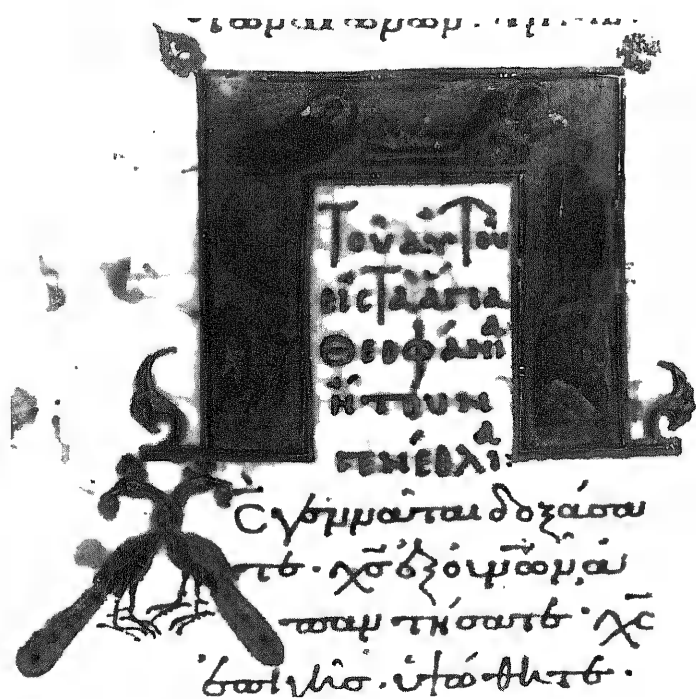 τῶν αἰώνων· ἀμήν·
Τοῦ αὐτοῦ
εἰς τὰ ἅγια
Θεοφάνια
ἤτουν
γενέθλια:
Χς γεννᾶται δοξάσα
τε· χς ἐξ οὐνῶν ἀ
παντήσατε· χς
ἐπὶ γῆς· ὑψώθητε·